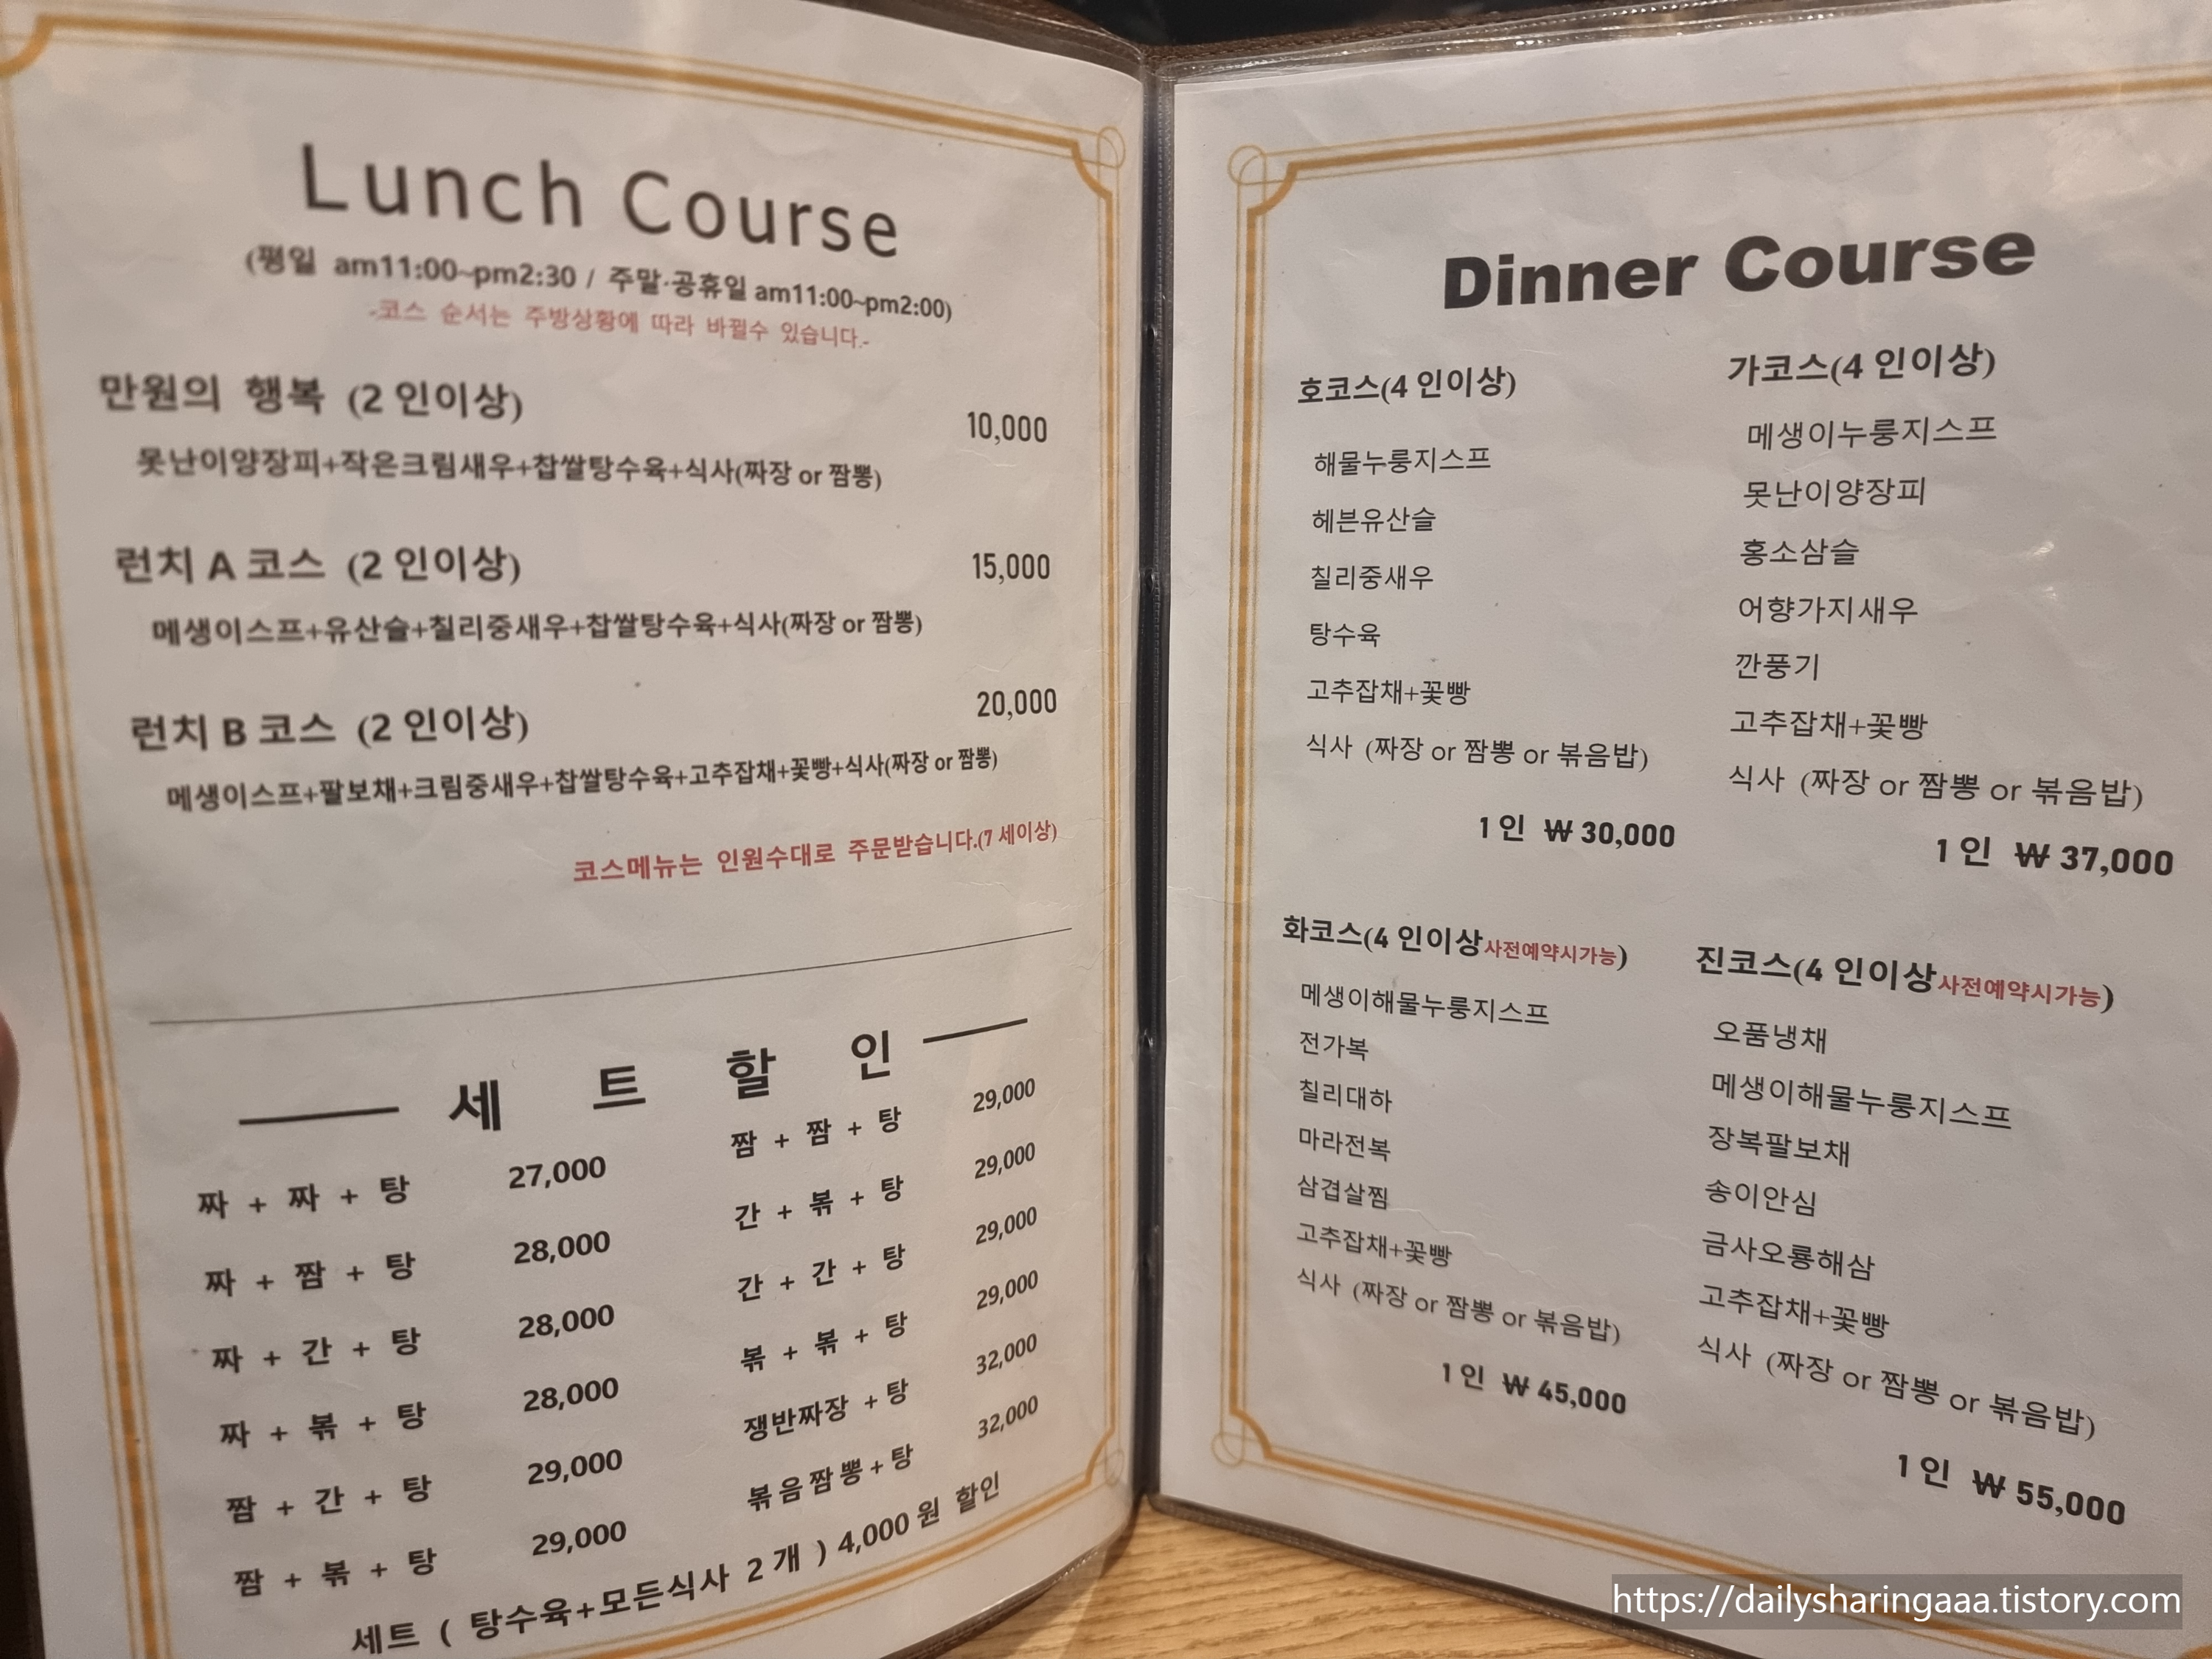 Lunch Course
(평일 am11:00~pm2:30 / 주말·공휴일 am11:00~pm2:00)
-코스 순서는 주방상황에 따라 바뀔수 있습니다.-
만원의 행복 (2 인이상)
10,000
못난이양장피+작은크림새우+찹쌀탕수육+식사(짜장 or 짬뽕)
런치 A 코스 (2 인이상)
15,000
메생이스프+유산슬+칠리중새우+찹쌀탕수육+식사(짜장 or 짬뽕)
런치 B 코스 (2 인이상)
20,000
메생이스프+팔보채+크림중새우+찹쌀탕수육+고추잡채+꽃빵+식사(짜장 or 짬뽕)
코스메뉴는 인원수대로 주문받습니다.(7 세이상)
세 트 할 인
짜 + 짜 + 탕 27,000
짜 + 짬 + 탕 28,000
짜 + 간 + 탕 28,000
짜 + 볶 + 탕 28,000
짬 + 간 + 탕 29,000
짬 + 볶 + 탕 29,000
짬 + 짬 + 탕 29,000
간 + 볶 + 탕 29,000
간 + 간 + 탕 29,000
볶 + 볶 + 탕 29,000
쟁반짜장 + 탕 32,000
볶음짬뽕 + 탕 32,000
세트 ( 탕수육+모든식사 2 개 ) 4,000 원 할인
Dinner Course
호코스(4 인이상)
해물누룽지스프
헤븐유산슬
칠리중새우
탕수육
고추잡채+꽃빵
식사 (짜장 or 짬뽕 or 볶음밥)
1 인 ₩ 30,000
가코스(4 인이상)
메생이누룽지스프
못난이양장피
홍소삼슬
어향가지새우
깐풍기
고추잡채+꽃빵
식사 (짜장 or 짬뽕 or 볶음밥)
1 인 ₩ 37,000
화코스(4 인이상사전예약시가능)
메생이해물누룽지스프
전가복
칠리대하
마라전복
삼겹살찜
고추잡채+꽃빵
식사 (짜장 or 짬뽕 or 볶음밥)
1 인 ₩ 45,000
진코스(4 인이상사전예약시가능)
오품냉채
메생이해물누룽지스프
장복팔보채
송이안심
금사오룡해삼
고추잡채+꽃빵
식사 (짜장 or 짬뽕 or 볶음밥)
1 인 ₩ 55,000
https://dailysharingaaa.tistory.com